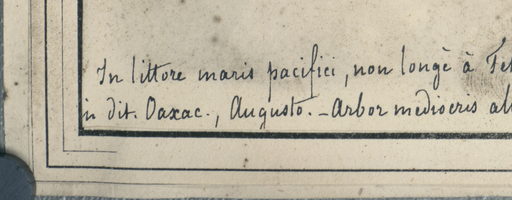 In littore maris pacifici, non longè à
in dit. Oaxac., Augusto. - Arbor mediocris